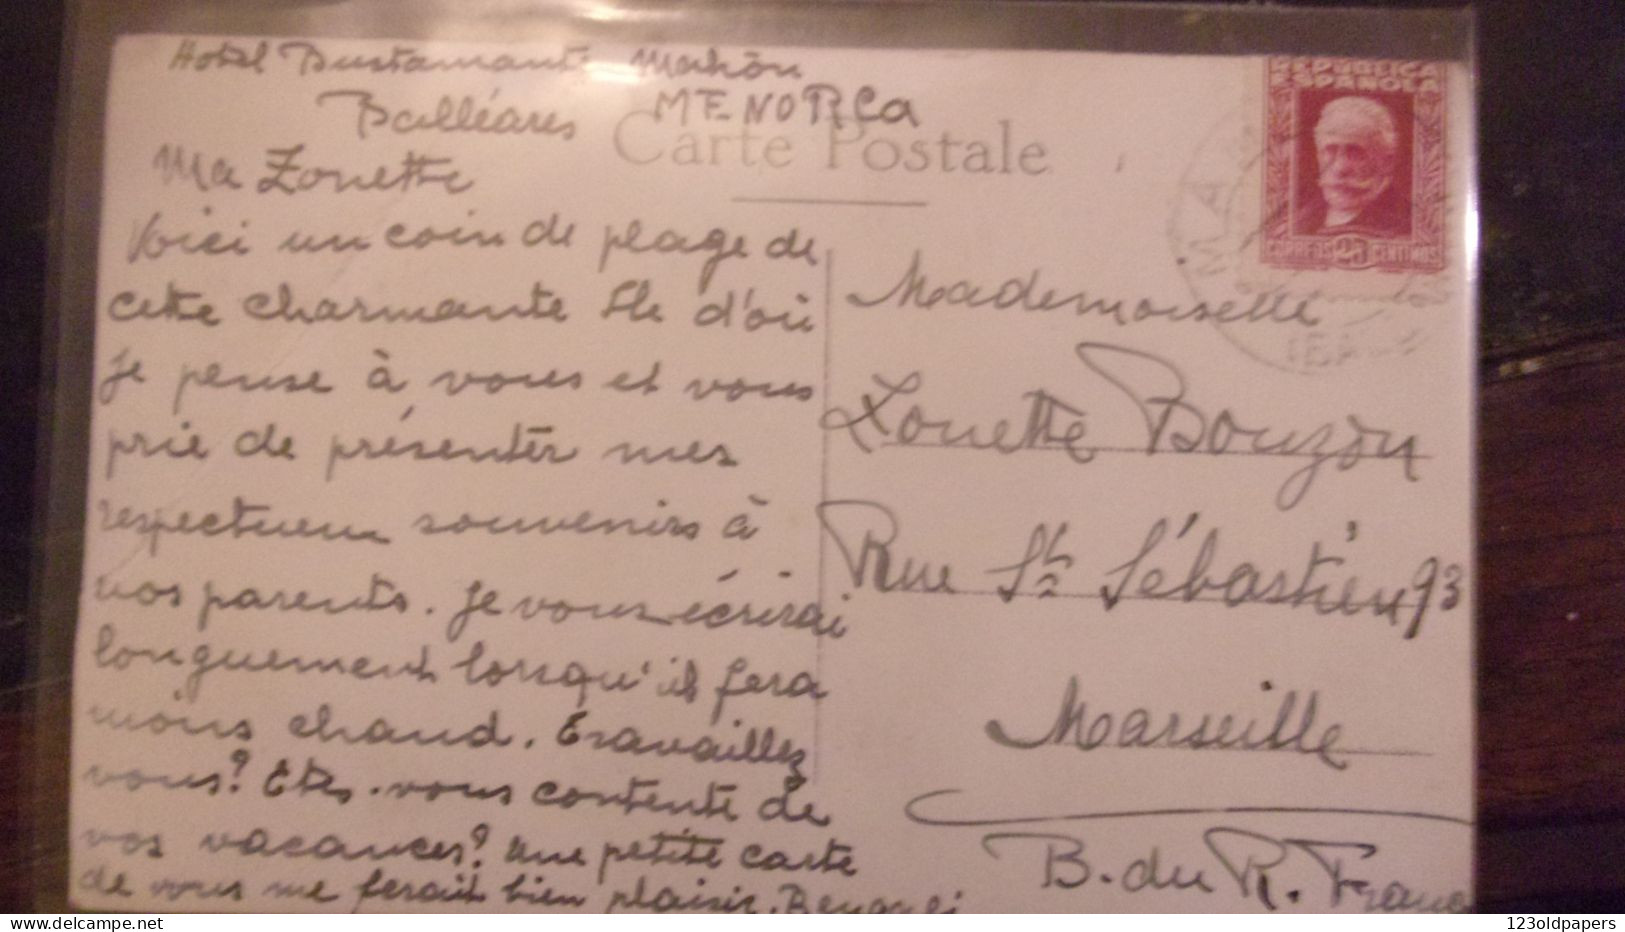 Hotel Bustamante Mahòn
Balléares MENORCa
Carte Postale
REPUBLICA
ESPAÑOLA
CORREOS 25 CENTIMOS
Ma Zouette
Voici un coin de plage de
cette charmante Ile d'où
je pense à vous et vous
prie de présenter mes
respectueux souvenirs à
vos parents. Je vous écrirai
longuement lorsqu'il fera
moins chaud. Travaillez
vous? Etes-vous contente de
vos vacances? Une petite carte
de vous me ferait bien plaisir.
Mademoiselle
Zouette Bouzòn
Rue St Sébastien 93
Marseille
B. du R. France
123oldpapers